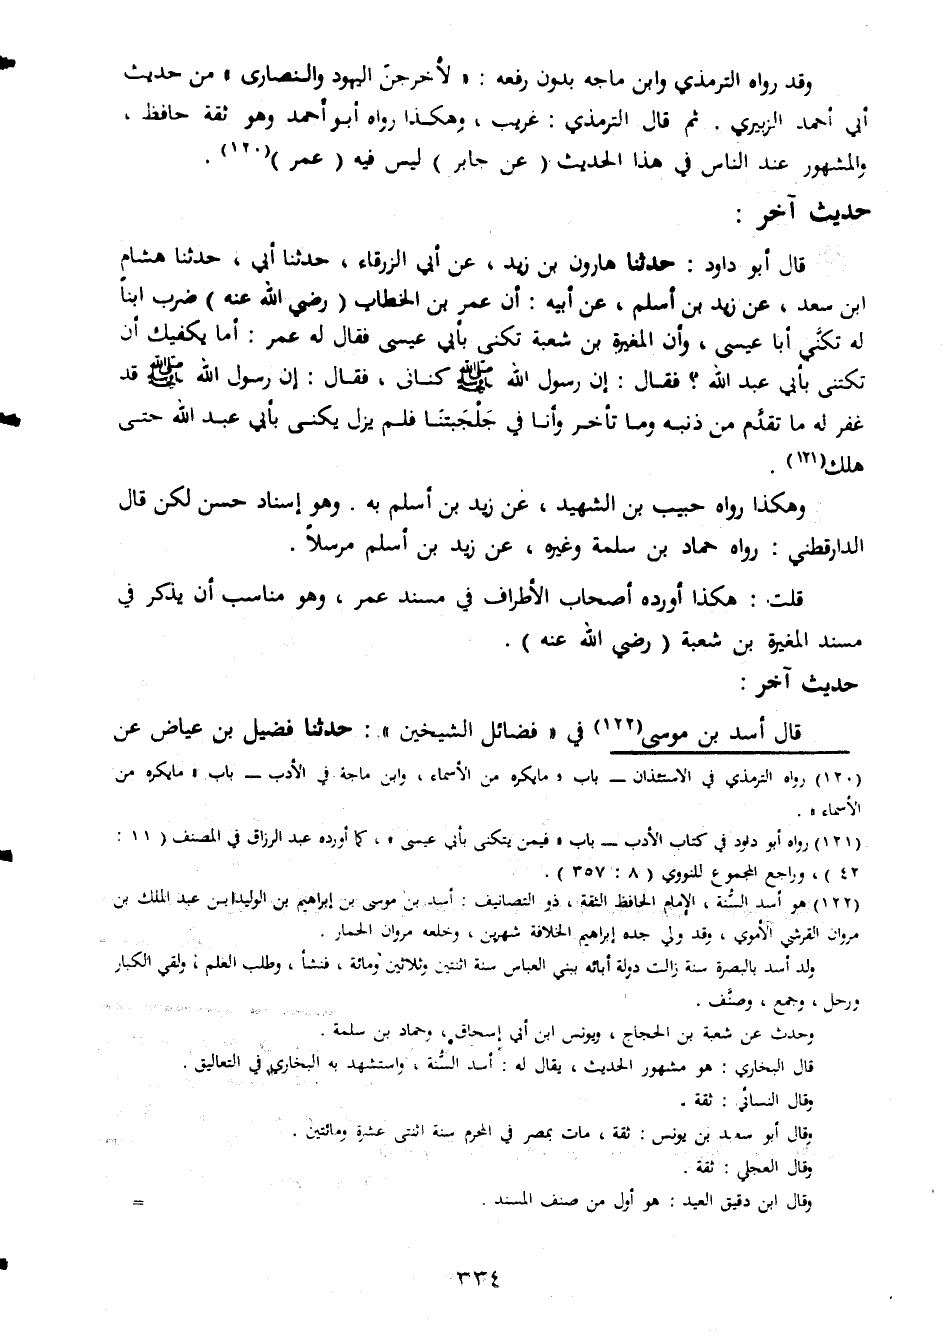 وقد رواه الترمذي وابن ماجه بدون رفعه : « لأخرجنّ اليهود والنصارى » من حديث
أبي أحمد الزبيري . ثم قال الترمذي : غريب ، وهكذا رواه أبو أحمد وهو ثقة حافظ ،
والمشهور عند الناس في هذا الحديث ( عن جابر ) ليس فيه ( عمر )(١٢٠) .
حديث آخر :
قال أبو داود : حدثنا هارون بن زيد ، عن أبي الزرقاء ، حدثنا أبي ، حدثنا هشام
ابن سعد ، عن زيد بن أسلم ، عن أبيه : أن عمر بن الخطاب ( رضي الله عنه ) ضرب ابناً
له تكنَّي أبا عيسى ، وأن المغيرة بن شعبة تكنى بأبي عيسى فقال له عمر : أما يكفيك أن
تكتنى بأبي عبد الله ؟ فقال : إن رسول الله ﷺ كنانى ، فقال : إن رسول الله ﷺ قد
غفر له ما تقدَّم من ذنبه وما تأخر وأنا في جَلْجَبتنَا فلم يزل يكنى بأبي عبد الله حتى
هلك(١٢١) .
وهكذا رواه حبيب بن الشهيد ، عن زيد بن أسلم به . وهو إسناد حسن لكن قال
الدارقطني : رواه حماد بن سلمة وغيره ، عن زيد بن أسلم مرسلاً .
قلت : هكذا أورده أصحاب الأطراف في مسند عمر ، وهو مناسب أن يذكر في
مسند المغيرة بن شعبة ( رضي الله عنه ) .
حديث آخر :
قال أسد بن موسى(١٢٢) في « فضائل الشيخين » : حدثنا فضيل بن عياض عن
(١٢٠) رواه الترمذي في الاستئذان ــ باب « مايكره من الأسماء ، وابن ماجة في الأدب ــ باب « مايكره من
الأسماء » .
(١٢١) رواه أبو داود في كتاب الأدب ــ باب « فيمن يتكنى بأبي عيسى » ، كما أورده عبد الرزاق في المصنف ( ١١ :
٤٢ ) ، وراجع المجموع للنووي ( ٨ : ٣٥٧ ) .
(١٢٢) هو أسد السُّنة ، الإمام الحافظ الثقة ، ذو التصانيف : أسد بن موسى بن إبراهيم بن الوليد ابن عبد الملك بن
مروان القرشي الأموي ، وقد ولي جده إبراهيم الخلافة شهرين ، وخلعه مروان الحمار .
ولد أسد بالبصرة سنة زالت دولة أبائه ببني العباس سنة اثنتين وثلاثين ومائة ، فنشأ ، وطلب العلم ، ولقي الكبار
ورحل ، وجمع ، وصنَّف .
وحدث عن شعبة بن الحجاج ، ويونس ابن أبي إسحاق ، وحماد بن سلمة .
قال البخاري : هو مشهور الحديث ، يقال له : أسد السُّنة ، واستشهد به البخاري في التعاليق .
وقال النسائي : ثقة .
وقال أبو سعد بن يونس : ثقة ، مات بمصر في المحرم سنة اثنتى عشرة ومائتين .
وقال العجلي : ثقة .
وقال ابن دقيق العيد : هو أول من صنف المسند .
=
٣٣٤